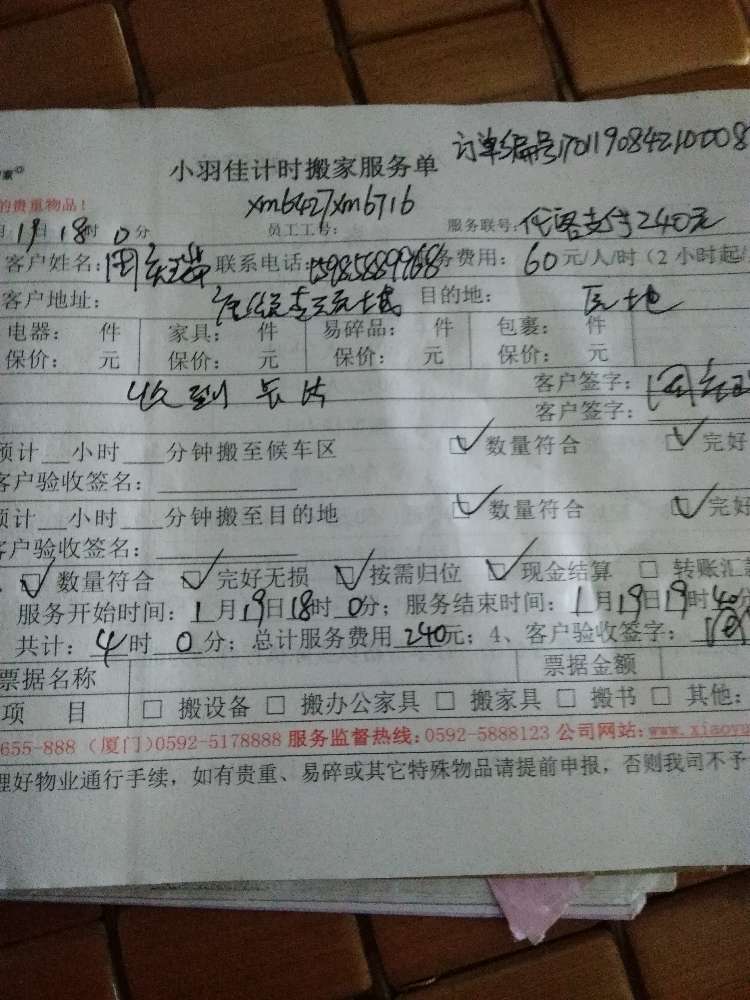 订单编号1701190842100008
小羽佳计时搬家服务单
的贵重物品！
xm6427xm6716
月19日18时0分 员工工号： 服务联号：代客支付240元
客户姓名： 联系电话：15985889968 服务费用：60元/人/时（2小时起/
客户地址： 目的地：
电器： 件 家具： 件 易碎品： 件 包裹： 件
保价： 元 保价： 元 保价： 元 保价： 元
客户签字：
收到
客户签字：
预计__小时___分钟搬至候车区 ☑数量符合 ☑完好
客户验收签名：
预计__小时___分钟搬至目的地 ☑数量符合 ☑完好
客户验收签名：
☑数量符合 ☑完好无损 ☑按需归位 ☑现金结算 □转账汇
服务开始时间：1月19日18时0分；服务结束时间：1月19日19时40分
共计：4时0分；总计服务费用240元；4、客户验收签字：
票据名称 票据金额
项 目 □搬设备 □搬办公家具 □搬家具 □搬书 □其他：
655-888（厦门）0592-5178888 服务监督热线：0592-5888123 公司网站：www.xiaoyu
理好物业通行手续，如有贵重、易碎或其它特殊物品请提前申报，否则我司不予